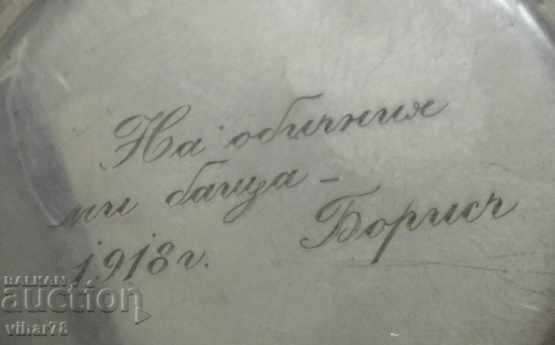 На обичния
ми баща –
1918 г. Борисъ
BALKAN
auction
vihar78